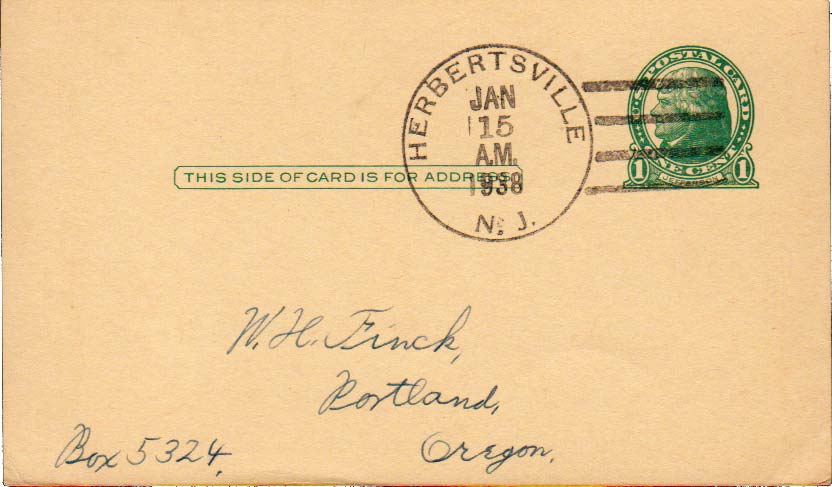 HERBERTSVILLE
JAN
15
A.M.
1938
N. J.
U.S. POSTAL CARD
ONE CENT
1 1
JEFFERSON
THIS SIDE OF CARD IS FOR ADDRESS
W. H. Finck,
Portland,
Oregon.
Box 5324.